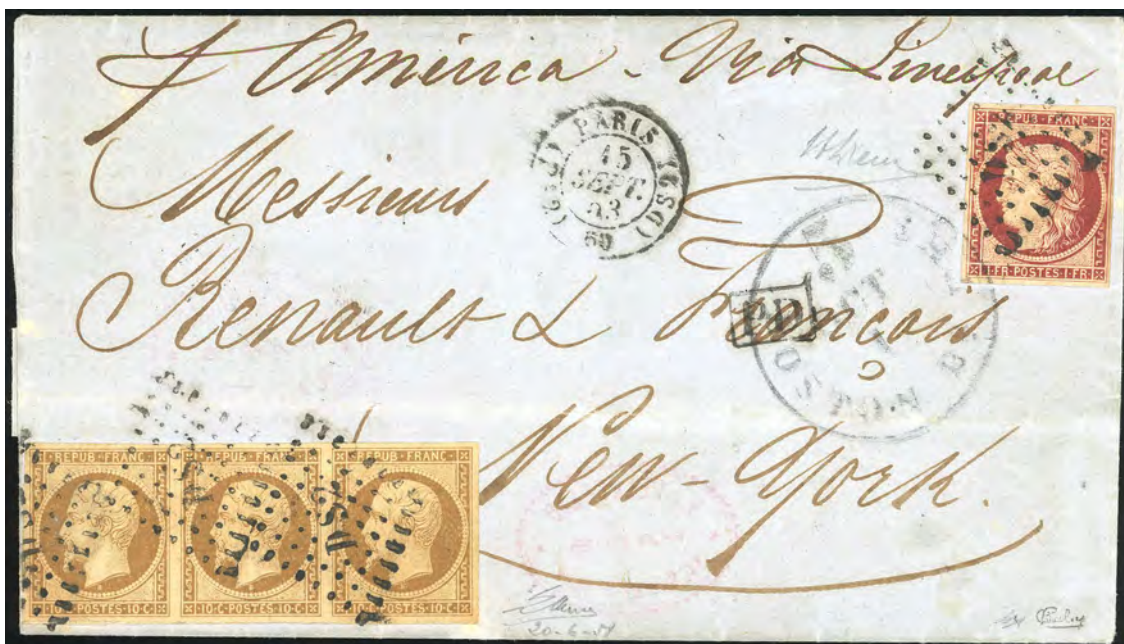 p América - Via Liverpool
PARIS
15
SEPT.
53
60
(DS2)
Messieurs
Renault & Francois
New-York.
PD
REPUB FRANC
1·FR·POSTES·1·FR
REPUB·FRANC
10·C·POSTES·10·C
REPUB·FRANC
10·C·POSTES·10·C
REPUB·FRANC
10·C·POSTES·10·C
DS2
20-6-51